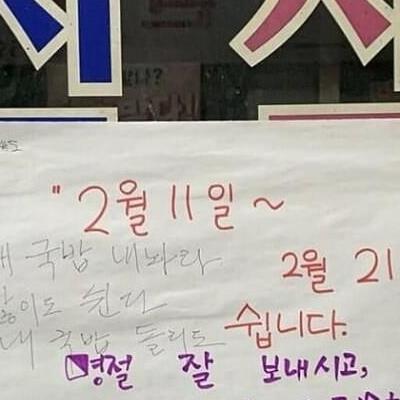 " 2월 11일 ~
2월 21
쉽니다.
내 국밥 내놔라
많이도 쉰다
내 국밥 돌리도
명절 잘 보내시고,